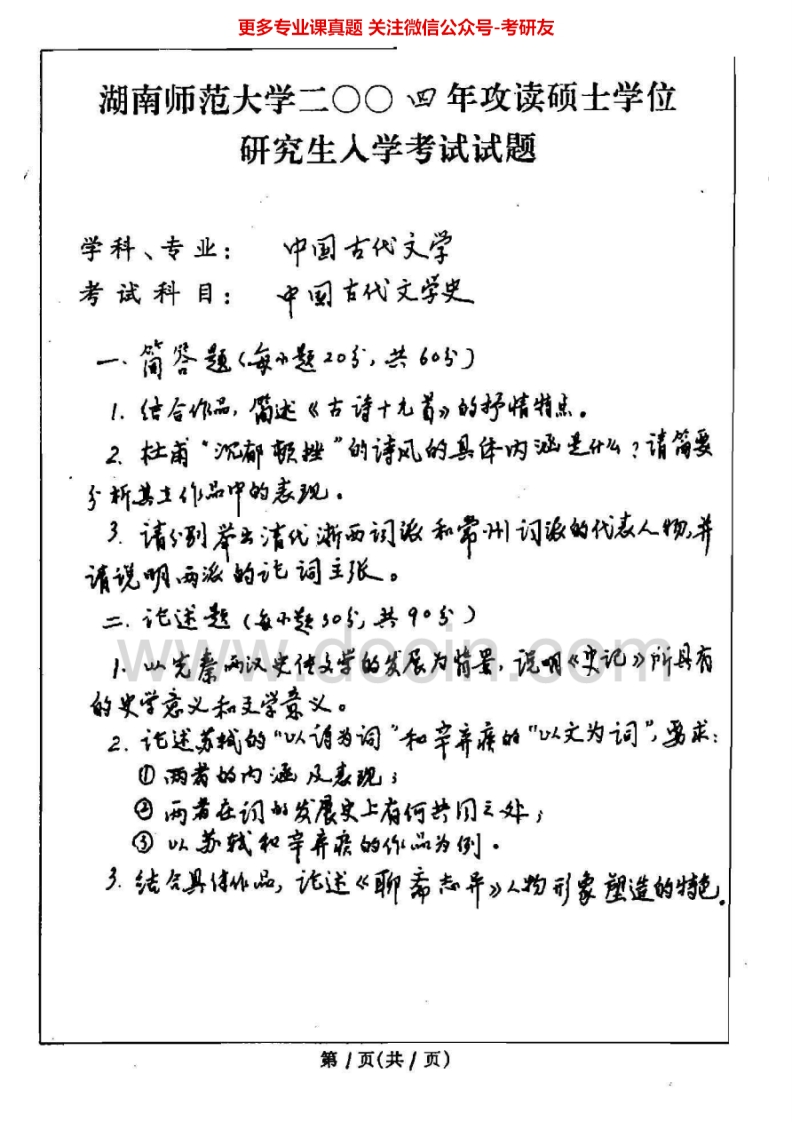 更多专业课真题 关注微信公众号-考研友
湖南师范大学二〇〇四年攻读硕士学位
研究生入学考试试题
学科、专业： 中国古代文学
考试科目： 中国古代文学史
一.简答题(每小题20分,共60分)
1.结合作品,简述《古诗十九首》的抒情特点。
2.杜甫“沉郁顿挫”的诗风的具体内涵是什么？请简要
分析其在作品中的表现。
3.请分别举出清代浙西词派和常州词派的代表人物,并
请说明两派的论词主张。
二.论述题(每小题30分,共90分)
www.docin.com
1.以先秦两汉史传文学的发展为背景,说明《史记》所具有
的史学意义和文学意义。
2.论述苏轼的“以诗为词”和辛弃疾的“以文为词”,要求:
①两者的内涵及表现；
②两者在词的发展史上有何共同之处；
③以苏轼和辛弃疾的作品为例。
3.结合具体作品,论述《聊斋志异》人物形象塑造的特色。
第1页(共1页)